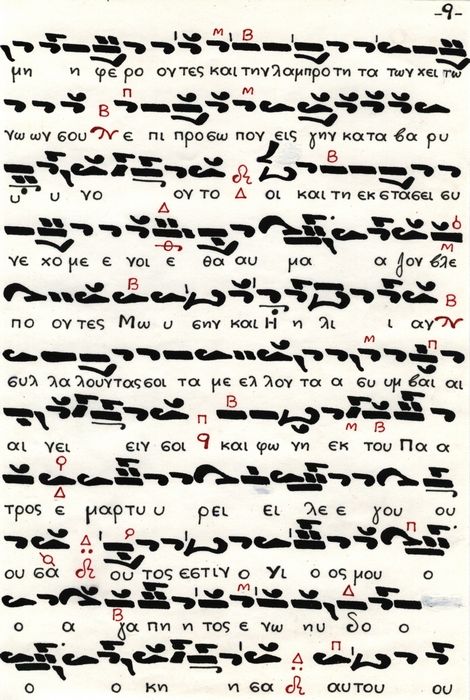 -9-
μη η φε ρο ον τες και την λαμπρο τη τα των χει τω
νω ων σου ε πι προσω πον εις γην κατα βα ρυ
υ υ νο ον το Δ οι και τη εκ στασει συ
νε χο με ε νοι ε θα αυ μα α ζον βλε
πο ον τες Μω υ σην και Η η λι ι αν
συλ λα λουντας σοι τα με ελ λον τα α συ υμ βαι αι
αι νει ειν σοι και φω νη εκ του Πα α
τρος ε μαρτυ υ ρει ει λε ε γου ου
ου σα ου τος εστιν ο Υι ο ος μου ο
ο α γα πη η τος ε νω ηυ δο ο
ο ο κη η σα αυτου ου